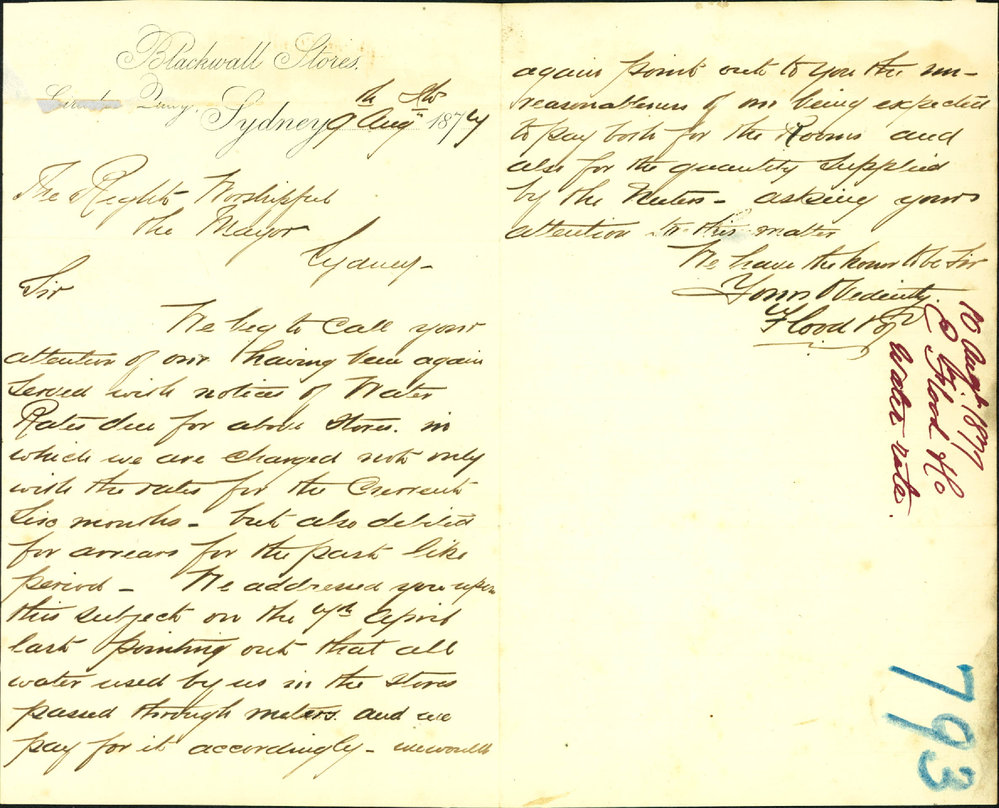 Blackwall Stores.
Circular Quay,
Sydney 9th Augt 1877
The Right Worshipful
the Mayor
Sydney -
Sir
We beg to call your
attention of our having been again
served with notices of Water
Rates due for above Stores. in
which we are charged not only
with the rates for the Current
Six months - but also debited
for arrears for the past like
period - We addressed you upon
this subject on the 7th April
last pointing out that all
water used by us in the Stores
passed through meters and we
pay for it accordingly - we would
again point out to you the un-
reasonableness of our being expected
to pay both for the Rooms and
also for the quantity supplied
by the Meters - asking your
attention to this matter
We have the honor to be Sir
Yours Obediently
Flood & Co
10 Augt. 1877
Flood & Co
Water rate.
793